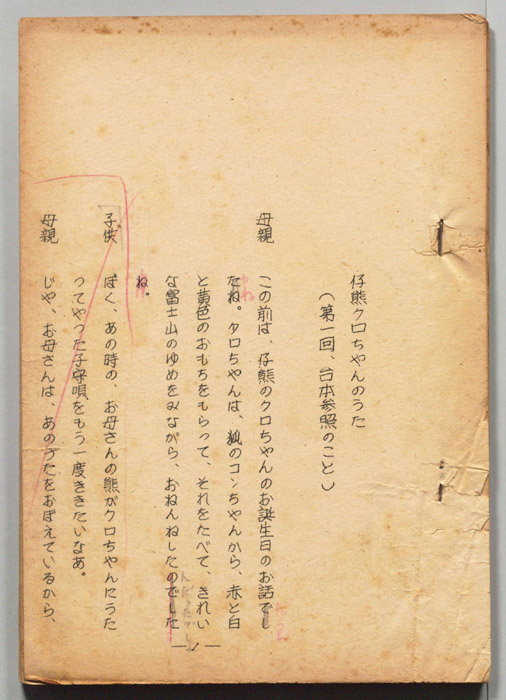 仔熊クロちゃんのうた
(第一回、台本参照のこと)
母親　この前は、仔熊のクロちゃんのお誕生日のお話でし
たね。クロちゃんは、狐のコンちゃんから、赤と白
と黄色のおもちをもらって、それをたべて、きれい
な富士山のゆめをみながら、おねんねしたのでした
ね。
子供　ぼく、あの時の、お母さんの熊がクロちゃんにうた
ってやった子守唄をもう一度ききたいなあ。
母親　じゃ、お母さんは、あのうたをおぼえているから、
—1—